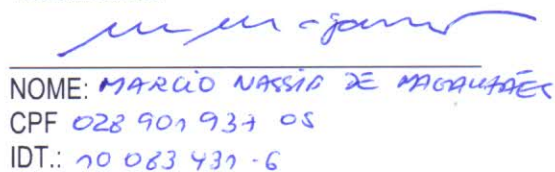 NOME: MARCIO NASSIF DE MAGALHÃES
CPF 028 901 937 05
IDT.: 10 063 431 - 6